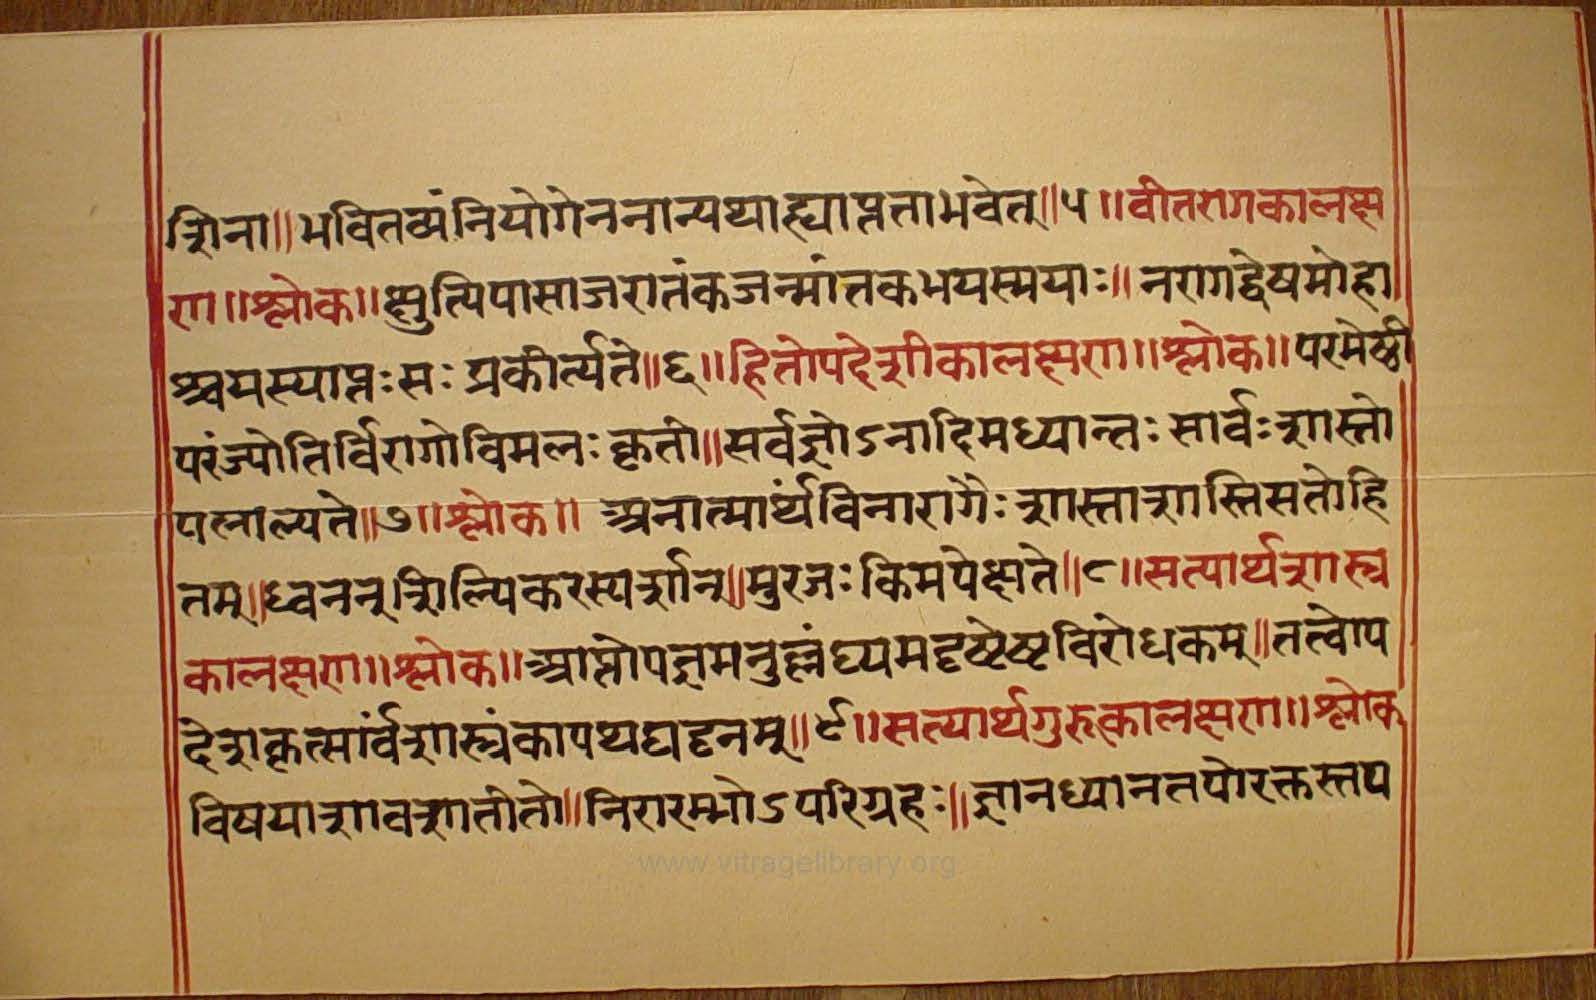 शिना॥भवितव्यंनियोगेननान्यथाह्याप्तताभवेत्॥५॥वीतरागकालक्ष
ण॥श्लोक॥क्षुत्पिपासाजरातंकजन्मांतकभयस्मयाः॥नरागद्वेषमोहा
श्चयस्याप्तःसःप्रकीर्त्यते॥६॥हितोपदेशीकालक्षण॥श्लोक॥परमेष्ठी
परंज्योतिर्विरागोविमलःकृती॥सर्वज्ञोऽनादिमध्यान्तःसार्वःशास्तो
पलाल्यते॥७॥श्लोक॥अनात्मार्थंविनारागैःशास्ताशास्तिसतोहि
तम्॥ध्वनन्शिल्पिकरस्पर्शान्॥मुरजःकिमपेक्षते॥८॥सत्यार्थशास्त्र
कालक्षण॥श्लोक॥आप्तोपज्ञमनुल्लंघ्यमदृष्टेष्टविरोधकम्॥तत्वोप
देशकृत्सार्वंशास्त्रंकापथघट्टनम्॥९॥सत्यार्थगुरुकालक्षण॥श्लोक
विषयाशावशातीतो॥निरारम्भोऽपरिग्रहः॥ज्ञानध्यानतपोरक्तस्तप
www.vitragelibrary.org